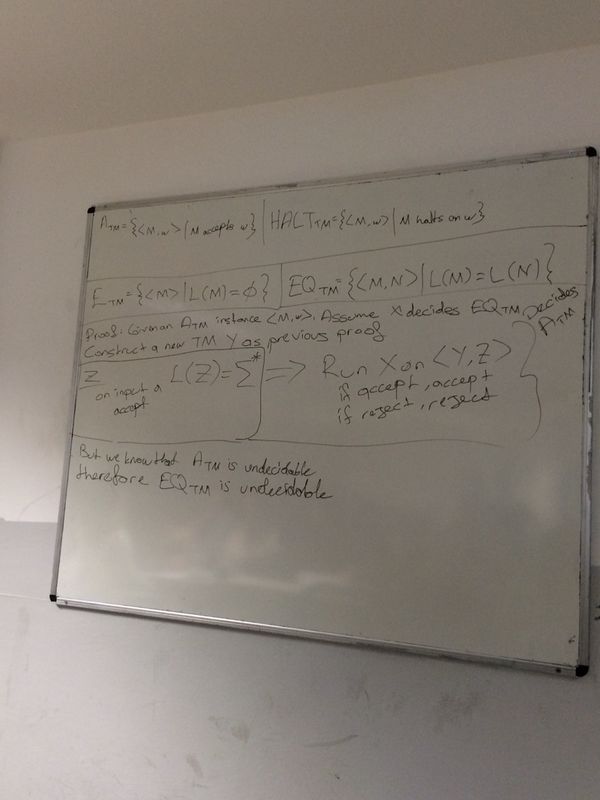 A_TM = {<M,w> | M accepts w} | HALT_TM = {<M,w> | M halts on w}
E_TM = {<M> | L(M) = ∅} | EQ_TM = {<M,N> | L(M) = L(N)}
Proof: Given an A_TM instance <M,w>. Assume X decides EQ_TM
Construct a new TM Y as previous proof
Z
on input a
accept
L(Z) = Σ* => Run X on <Y,Z>
if accept, accept
if reject, reject
} Decides
A_TM
But we know that A_TM is undecidable
therefore EQ_TM is undecidable